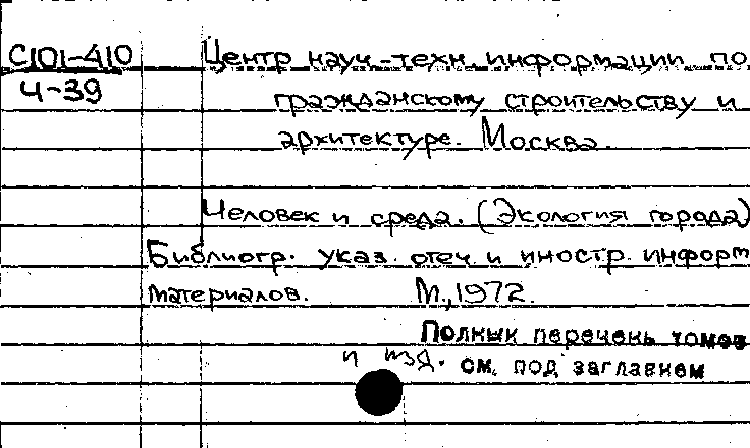 С101-410
Ч-39
Центр науч.-техн. информации по
гражданскому строительству и
архитектуре. Москва.
Человек и среда. (Экология города)
Библиогр. указ. отеч. и иностр. информ
материалов. М., 1972.
Полный перечень томов
и изд. см. под заглавием